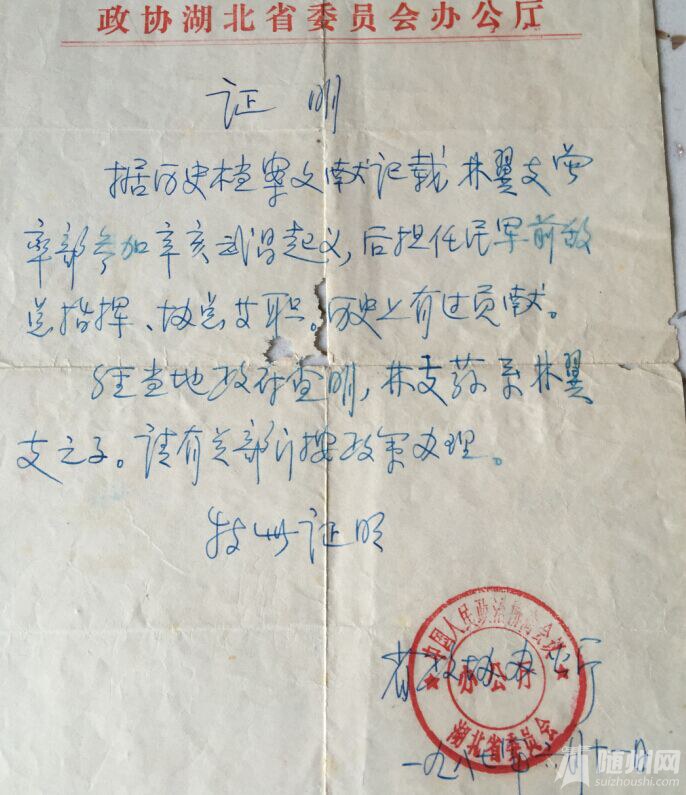 政协湖北省委员会办公厅
证明
据历史档案文献记载林翼支曾
率部参加辛亥武昌起义,后担任民军前敌
总指挥、协总等职。历史上有过贡献。
经当地政府查明,林支荪系林翼
支之子。请有关部门按政策办理。
特此证明
中国人民政治协商会议
省政协办公厅
办公厅
湖北省委员会
一九八七年 月十一日
随州网
suizhoushi.com